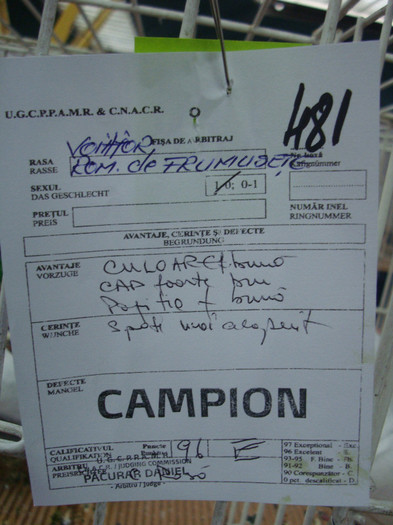 U.G.C.P.P.A.M.R. & C.N.A.C.R.
481
FIȘA DE ARBITRAJ
RASA
RASSE
ROM. de FRUMUSEȚE
SEXUL
DAS GESCHLECHT
1-0; 0-1
PREȚUL
PREIS
NUMĂR INEL
RINGNUMMER
AVANTAJE, CERINȚE ȘI DEFECTE
BEGRUNDUNG
AVANTAJE
VORZUGE
CULOARE f. bună
CAP foarte bun
Poziție f bună
CERINȚE
WUNCHE
Spate mai
DEFECTE
MANGEL
CAMPION
CALIFICATIVUL
QUALIFIKATION
Puncte
96
E
97 Excepțional
96 Excelent
93-95 F. Bine
91-92 Bine
90 Corespunzător
0 pct. descalificat
ARBITRU
JUDGING COMMISSION
PACURAR DANIEL
- Arbitru / Judge -